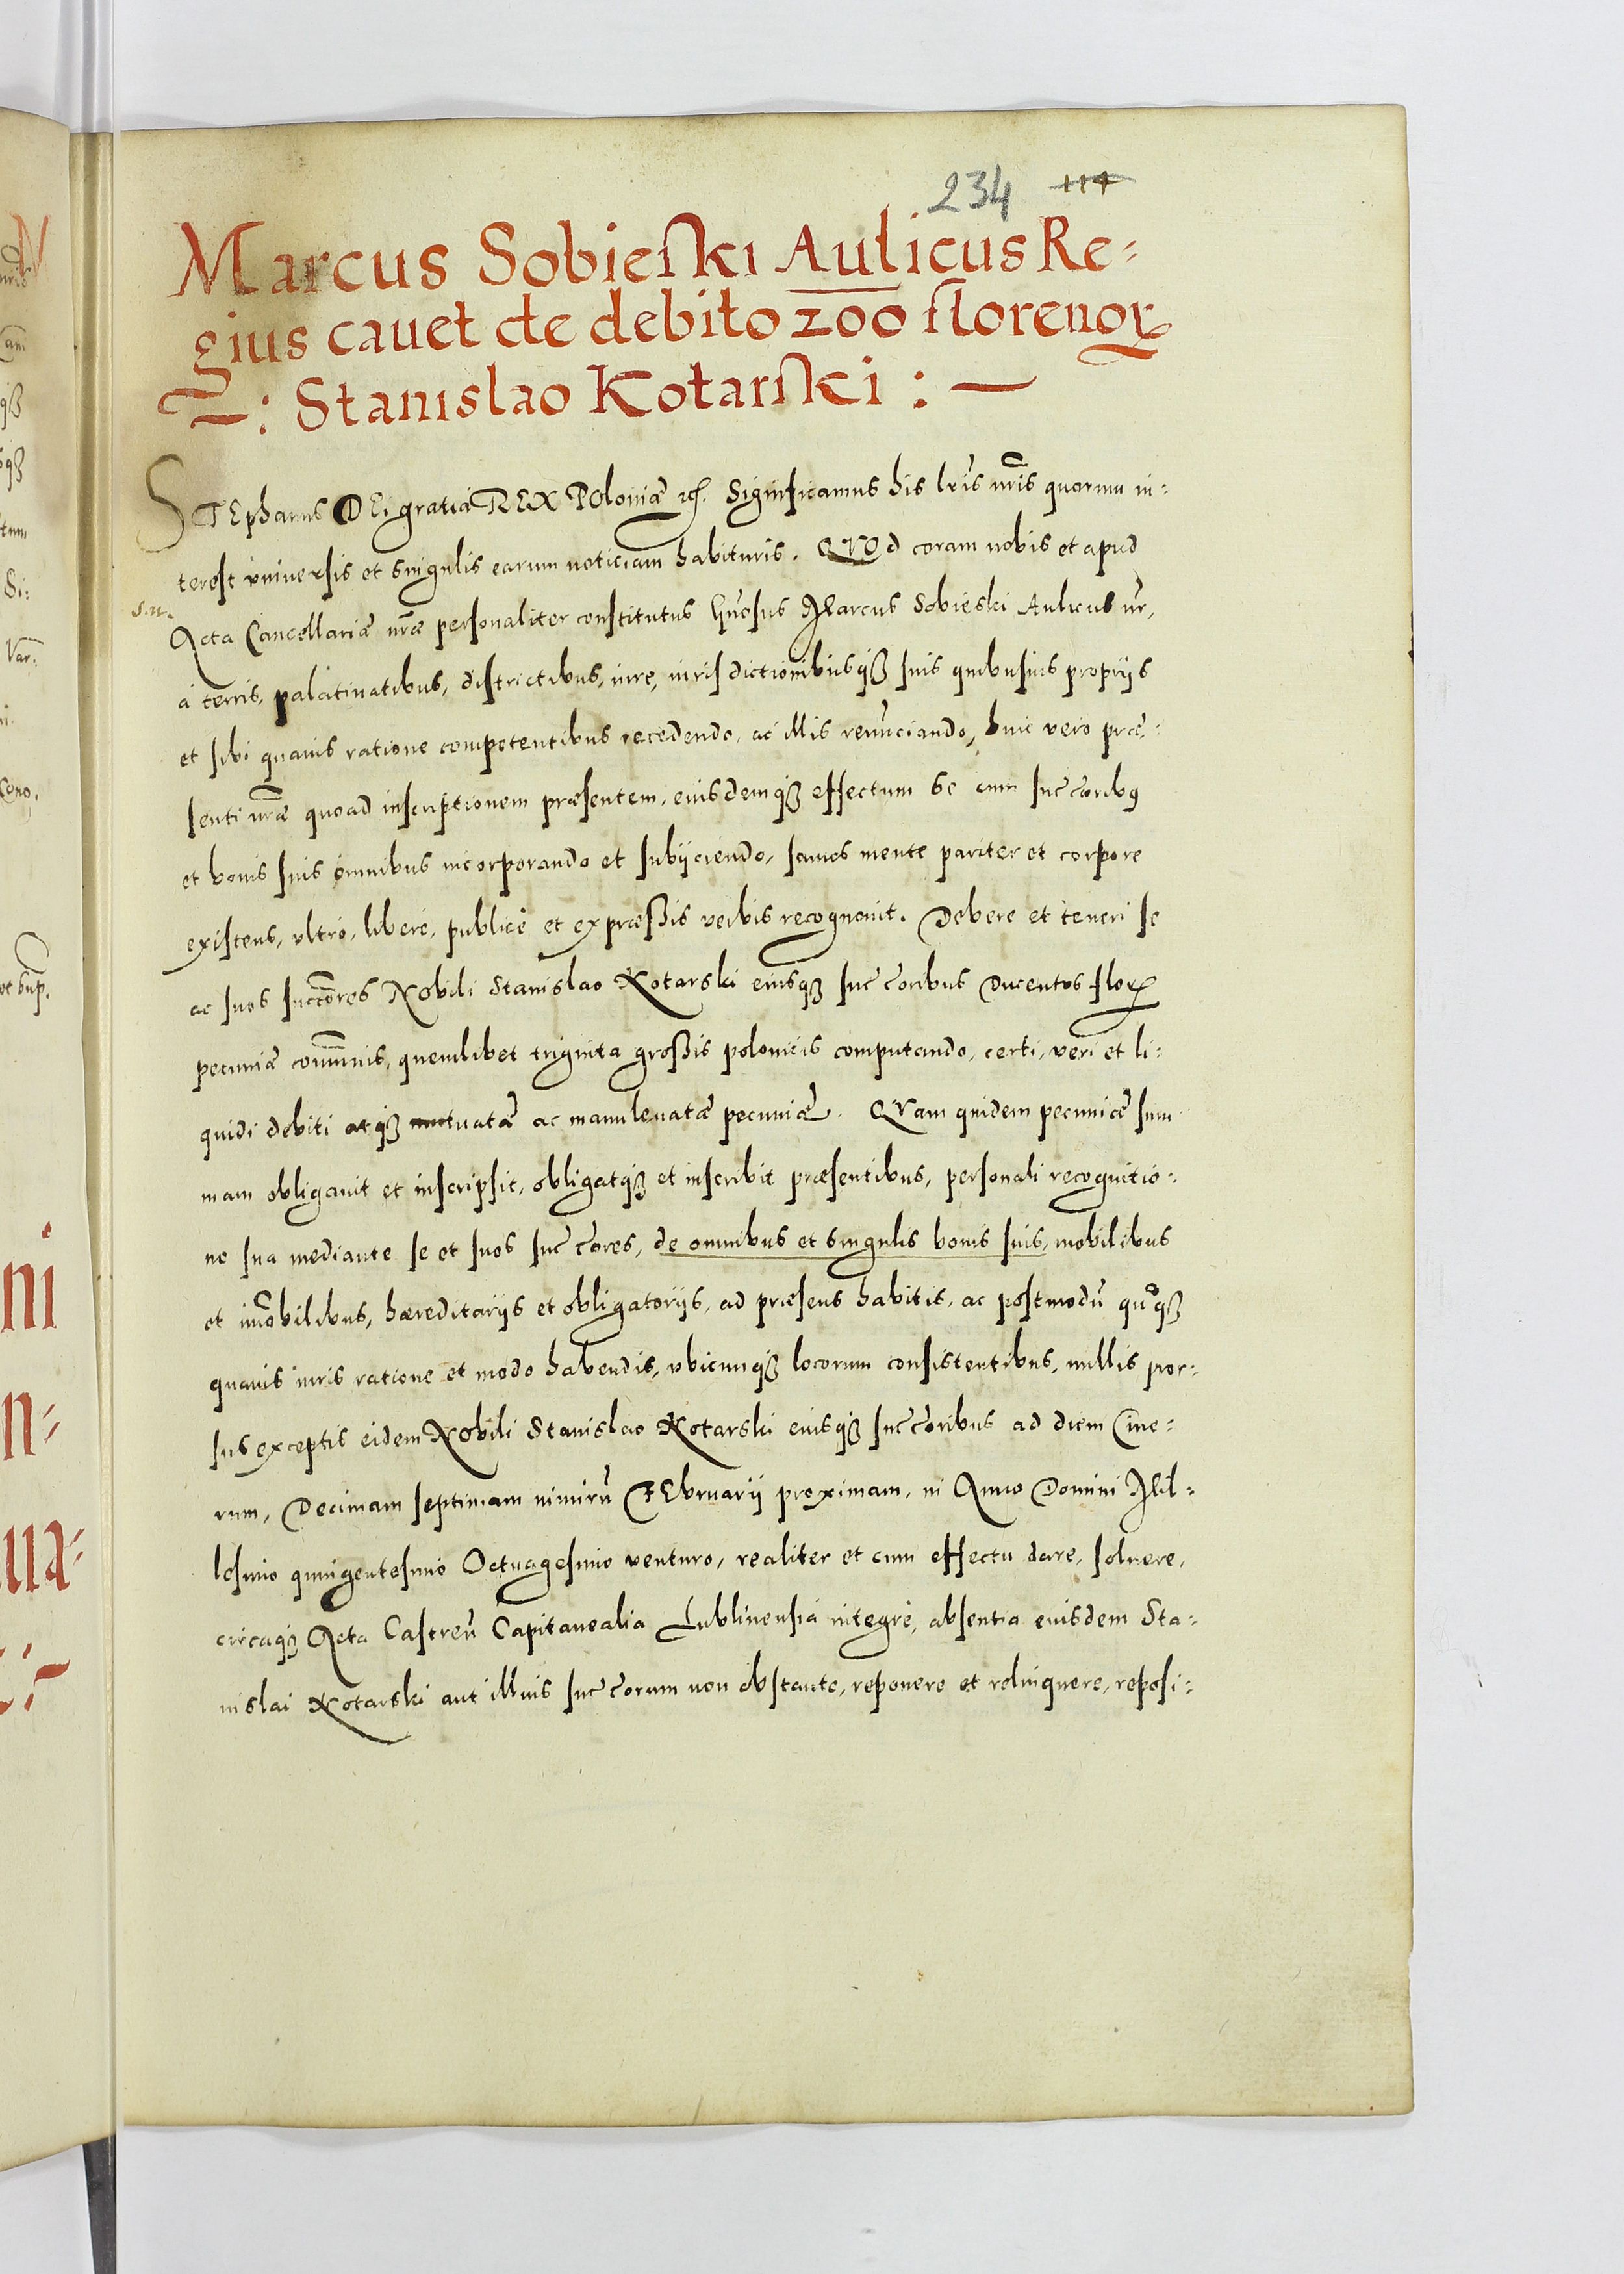 234 114
Marcus Sobieski Aulicus Re=
gius cauet de debito 200 florenoꝝ
: Stanislao Kotarski :
STEphanus DEi gratia REX POloniæ ꝛcꝭ. Significamus his lr̃is nr̃is quorum in=
terest vniuersis et singulis earum noticiam habituris. QVOd coram nobis et apud
S. n.
Acta Cancellariæ nr̃æ personaliter constitutus Gñosus Marcus Sobieski Aulicus nr̃,
à terris, palatinatibus, districtibus, iure, iurisdictionibusqȝ suis quibusuis proprijs
et sibi quauis ratione competentibus recedendo, ac illis renũciando, huic vero præ=
senti nr̃æ quoad inscriptionem præsentem, eiusdemqȝ effectum se cum succ̃oribꝰ
et bonis suis omnibus incorporando et subijciendo, sanus mente pariter et corpore
existens, vltrò, liberè, publicè et expræssis verbis recognouit. Debere et teneri se
ac suos succ̃ores Nobili Stanislao Kotarski eiusqȝ succ̃oribus Ducentos floꝝ
pecuniæ com̃unis, quemlibet triginta grossis polonicis computando, certi, veri et li=
quidi debiti atqȝ mutuatæ ac manuleuatæ pecuniæ. QVam quidem pecuniæ sum
mam obligauit et inscripsit, obligatqȝ et inscribit præsentibus, personali recognitio=
ne sua mediante se et suos succ̃ores, de omnibus et singulis bonis suis, mobilibus
et im̃obilibus, hæreditarijs et obligatorijs, ad præsens habitis, ac postmodũ quoqȝ
quauis iuris ratione et modo habendis, vbicunqȝ locorum consistentibus, nullis pror=
sus exceptis eidem Nobili Stanislao Kotarski eiusqȝ succ̃oribus ad diem Cine=
rum, Decimam septimam nimirũ FEbruarij proximam, in Anno Domini Mil=
lesimo quingentesimo Octuagesimo venturo, realiter et cum effectu dare, soluere,
circaqȝ Acta Castreñ Capitanealia Lublinensia integrè, absentia eiusdem Sta=
nislai Kotarski aut illius succ̃orum non obstante, reponere et relinquere, reposi=